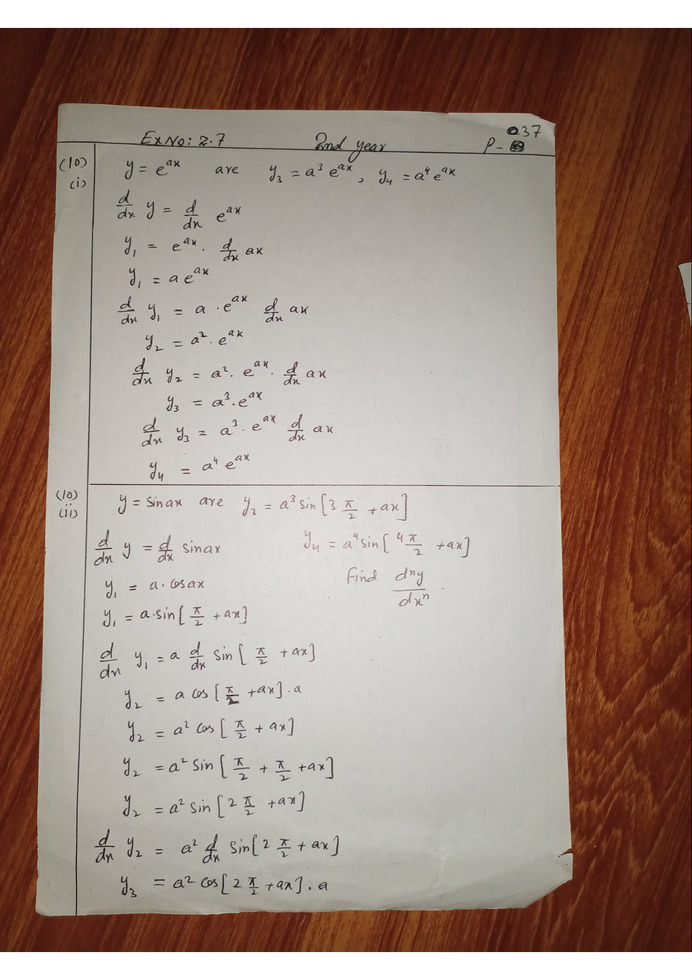 Ex No: 2.7 2nd year P- 037
(10) (i) y = e^{ax} are y₃ = a³ e^{ax}, y₄ = a⁴ e^{ax}
d/dx y = d/dx e^{ax}
y₁ = e^{ax} . d/dx ax
y₁ = a e^{ax}
d/dx y₁ = a . e^{ax} d/dx ax
y₂ = a² . e^{ax}
d/dx y₂ = a² . e^{ax} . d/dx ax
y₃ = a³ . e^{ax}
d/dx y₃ = a³ . e^{ax} d/dx ax
y₄ = a⁴ e^{ax}
(10) (ii) y = sinax are y₃ = a³ sin[3 π/2 + ax]
d/dx y = d/dx sinax y₄ = a⁴ sin[4 π/2 + ax]
y₁ = a . cosax Find dⁿy/dxⁿ .
y₁ = a . sin[π/2 + ax]
d/dx y₁ = a d/dx sin[π/2 + ax]
y₂ = a cos[π/2 + ax] . a
y₂ = a² cos[π/2 + ax]
y₂ = a² sin[π/2 + π/2 + ax]
y₂ = a² sin[2 π/2 + ax]
d/dx y₂ = a² d/dx sin[2 π/2 + ax]
y₃ = a² cos[2 π/2 + ax] . a